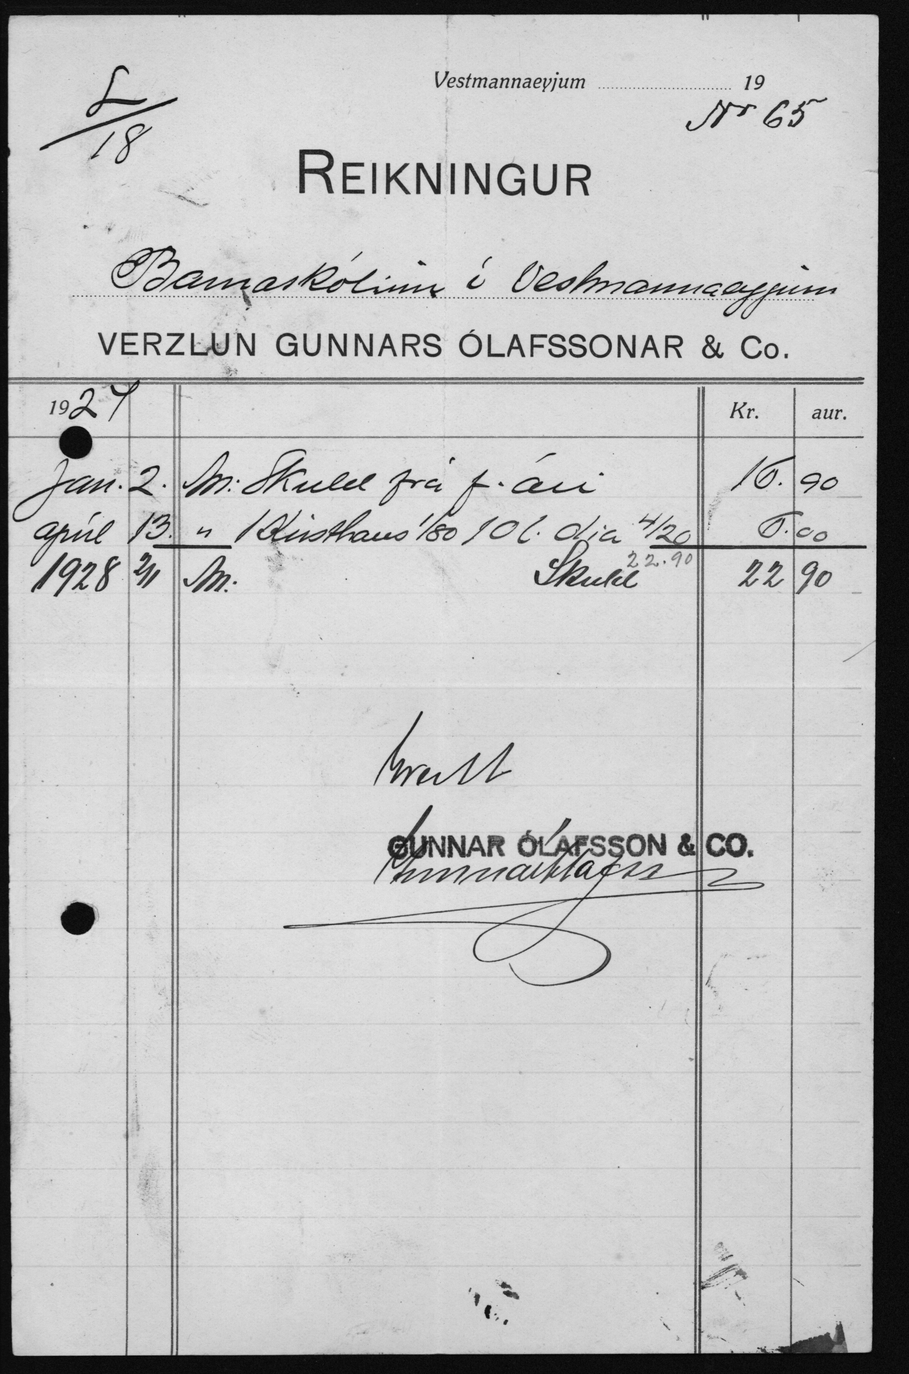 Vestmannaeyjum 19
L/18
Nr 65
REIKNINGUR
Barnaskólinn í Vestmannaeyjum
VERZLUN GUNNARS ÓLAFSSONAR & Co.
1927 Kr. aur.
Jan. 2. M: Skuld frá f. ári 16. 90
apríl 13. " 1 6.00
22.90
1928 2/1 M. Skuld 22 90
Kvitt
GUNNAR ÓLAFSSON & CO.
Gunnar Ólafss